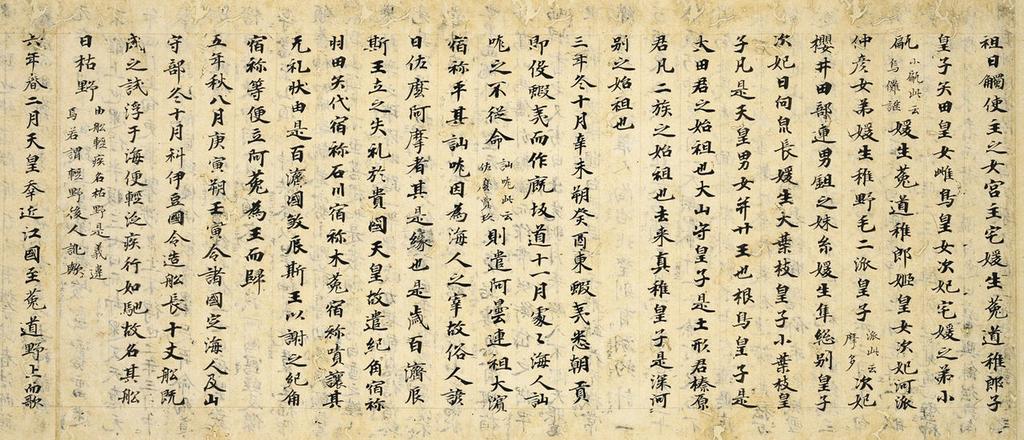 祖日觸使主之女宮主宅媛生菟道稚郎子
皇子矢田皇女雌鳥皇女次妃宅媛之弟小
甂小甂此云烏儺謎媛生菟道稚郎姬皇女次妃河派
仲彦女弟媛生稚野毛二派皇子派此云摩多次妃
櫻井田部連男鉏之妹糸媛生隼総別皇子
次妃日向泉長媛生大葉枝皇子小葉枝皇
子凡是天皇男女幷廿王也根鳥皇子是
大田君之始祖也大山守皇子是土形君榛原
君凡二族之始祖也去来真稚皇子是深河
別之始祖也
三年冬十月辛未朔癸酉東蝦夷悉朝貢
即役蝦夷而作廐坂道十一月處〻海人訕
哤之不従命訕哤此云佐麼賣玖則遣阿曇連祖大濱
宿祢平其訕哤因為海人之宰故俗人諺
曰佐麼阿摩者其是緣也是歳百濟辰
斯王立之失礼於貴國天皇故遣紀角宿祢
羽田矢代宿祢石川宿祢木菟宿祢嘖讓其
无礼狀由是百濟國敓辰斯王以謝之紀角
宿祢等便立阿菟為王而歸
五年秋八月庚寅朔壬寅令諸國定海人及山
守部冬十月科伊豆國令造舩長十丈舩既
成之試浮于海便輕泛疾行如馳故名其舩
曰枯野由舩輕疾名枯野是義違焉若謂輕野後人訛歟
六年春二月天皇幸近江國至菟道野上而歌